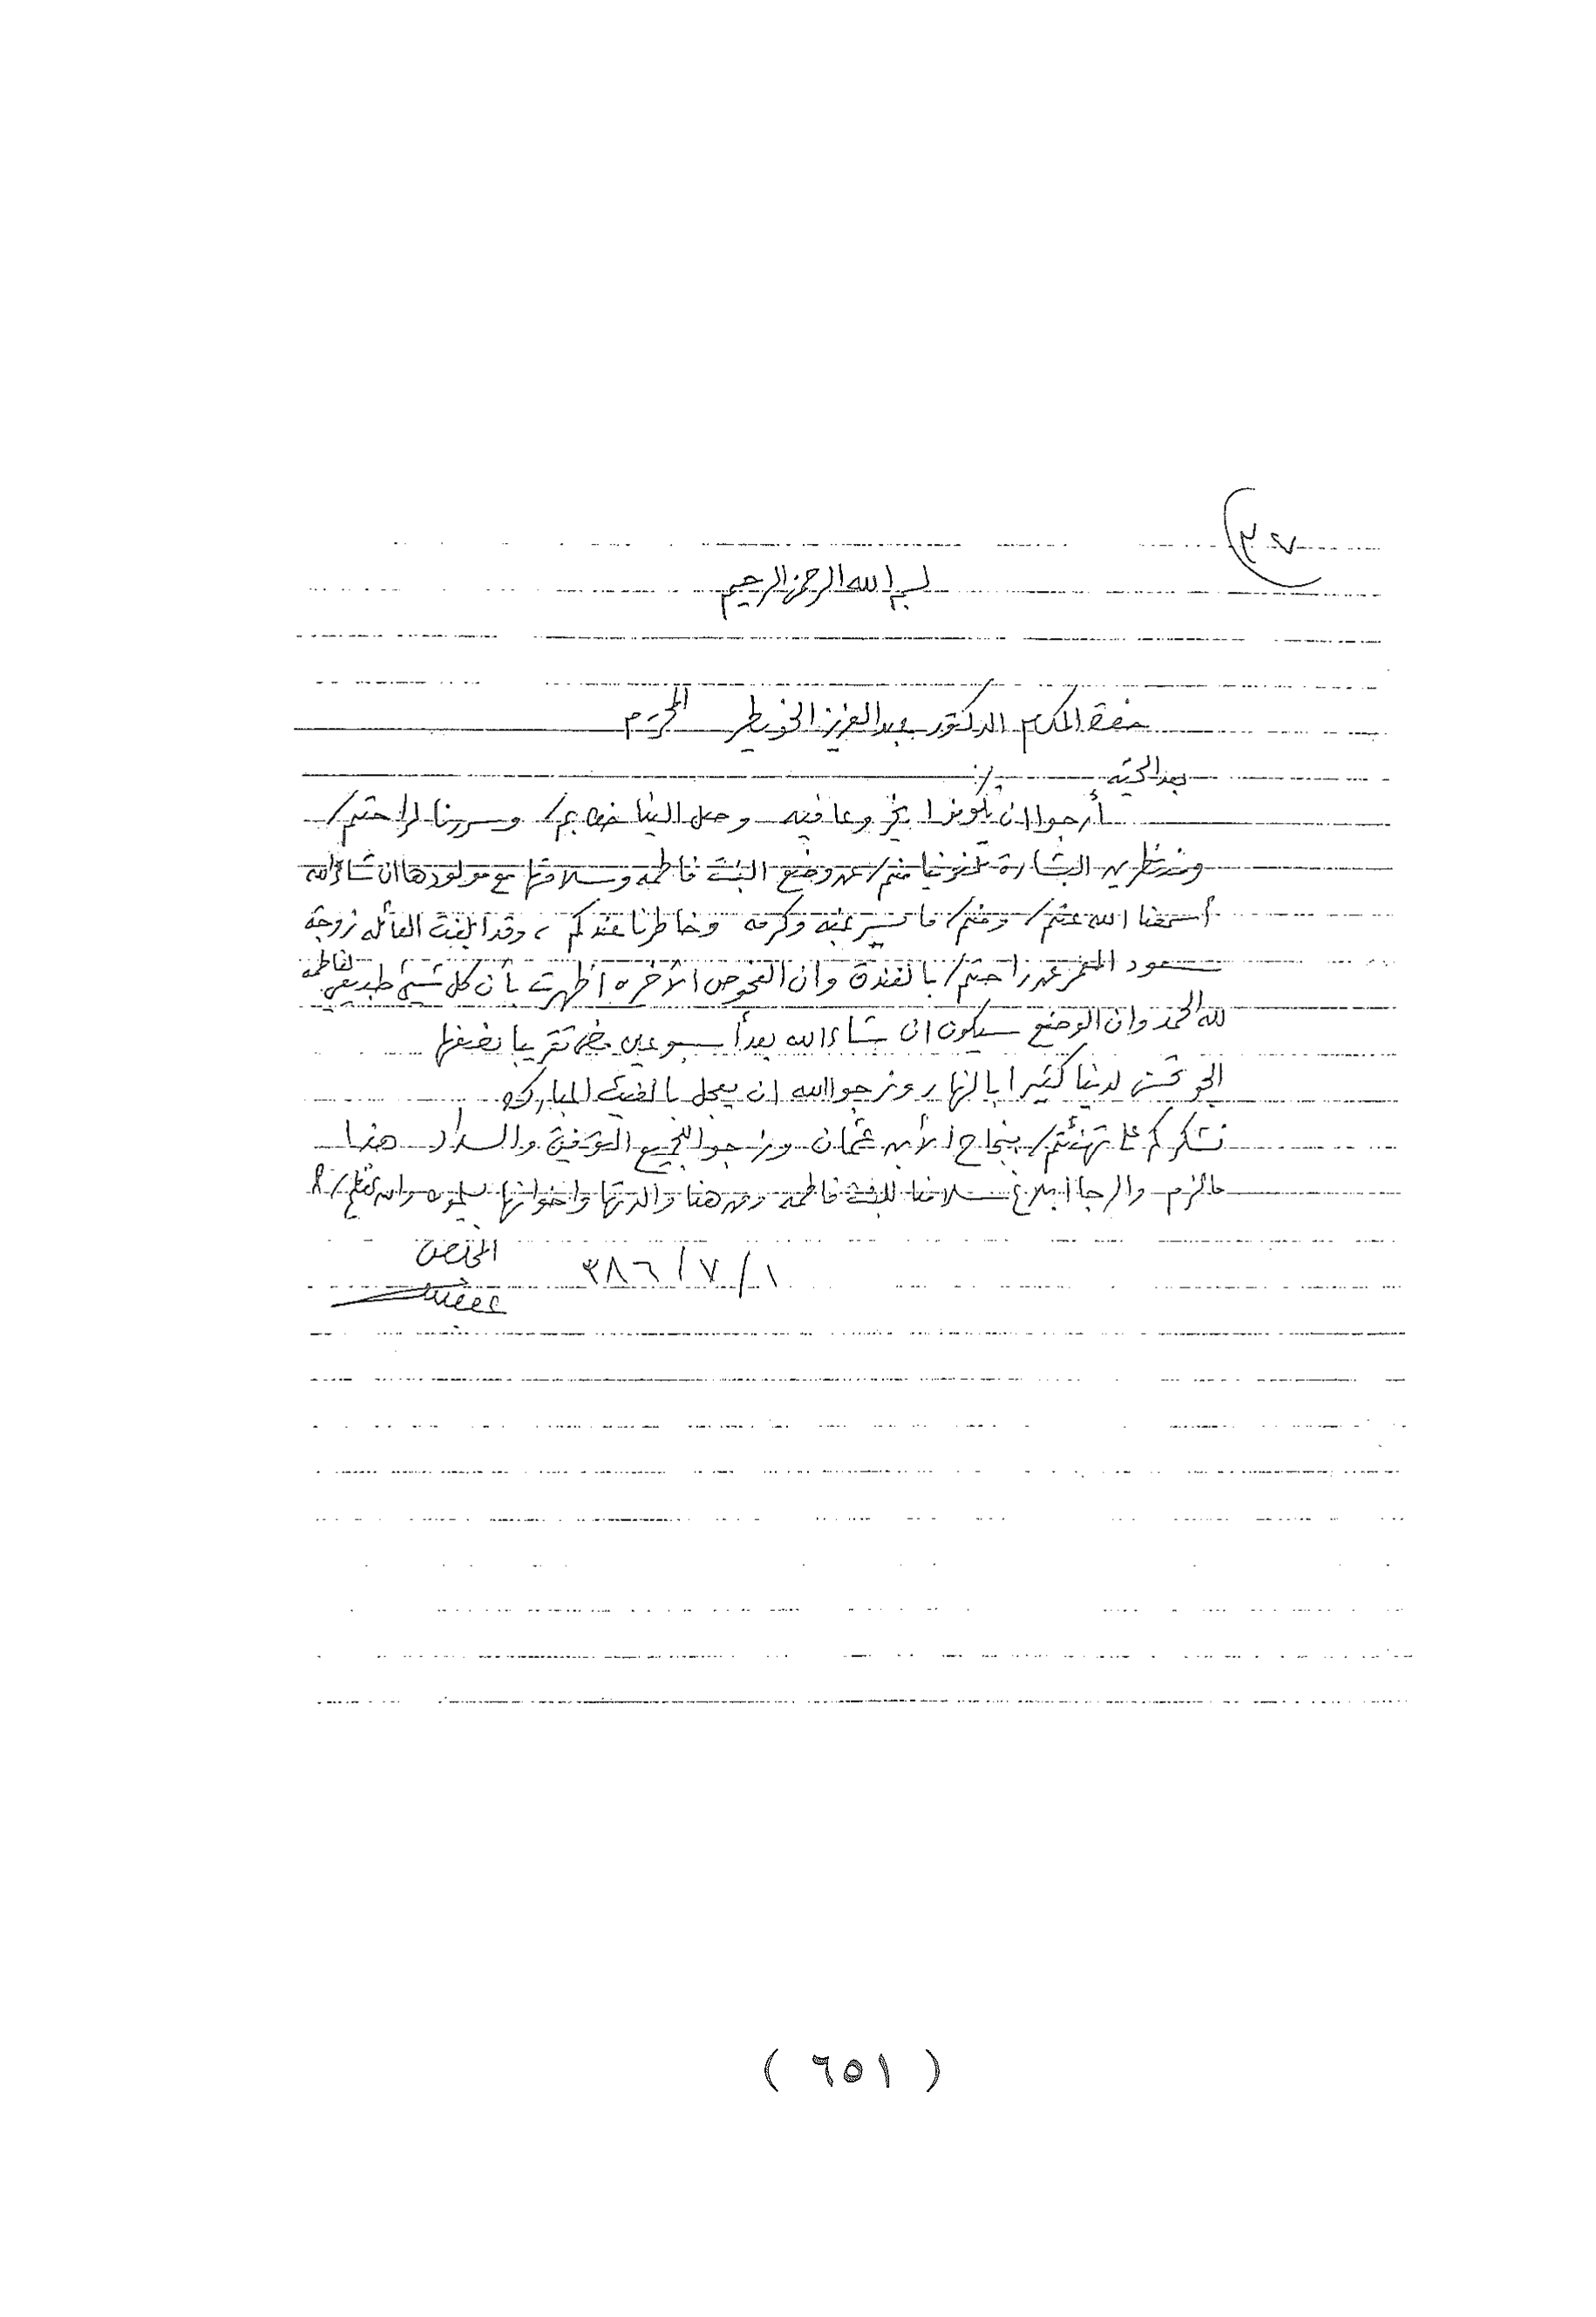 ٣٧
بسم الله الرحمن الرحيم
حضرة المكرم الدكتور عبدالعزيز الخويطر المحترم
بعد التحية /:
أرجوا ان تكونوا بخير وعافيه وصل الينا خطابكم/ وسررنا لراحتكم/
ومنتظرين البشارة تلفونيا منكم/ عن وضع البنت فاطمه وسلامتها مع مولودها ان شاء الله
أسمعنا الله عنكم/ ومنكم/ ما يسر بمنه وكرمه وخاطرنا عندكم ، وقد ابلغت العائله زوجة
سعود المعمر عن راحتكم/ بالفندق وان الفحوص الأخره أظهرت بأن كل شيئ طبيعي لفاطمه
لله الحمد وان الوضع سيكون ان شاء الله بعد أسبوعين مضى تقريبا نصفها
الجو تحسن لدينا كثيرا بالنهار ونرجوا الله ان يعجل بالغيث المبارك
نشكركم على تهنئتكم/ بنجاح الأبن عثمان ونرجوا للجميع التوفيق والسداد هذا
مالزم والرجا أبلاغ سلامنا للبنت فاطمه ومن هنا والدتها واخوانها يسلمون والله يحفظكم/
المخلص
٣٨٦/٧/١
( ٦٥١ )